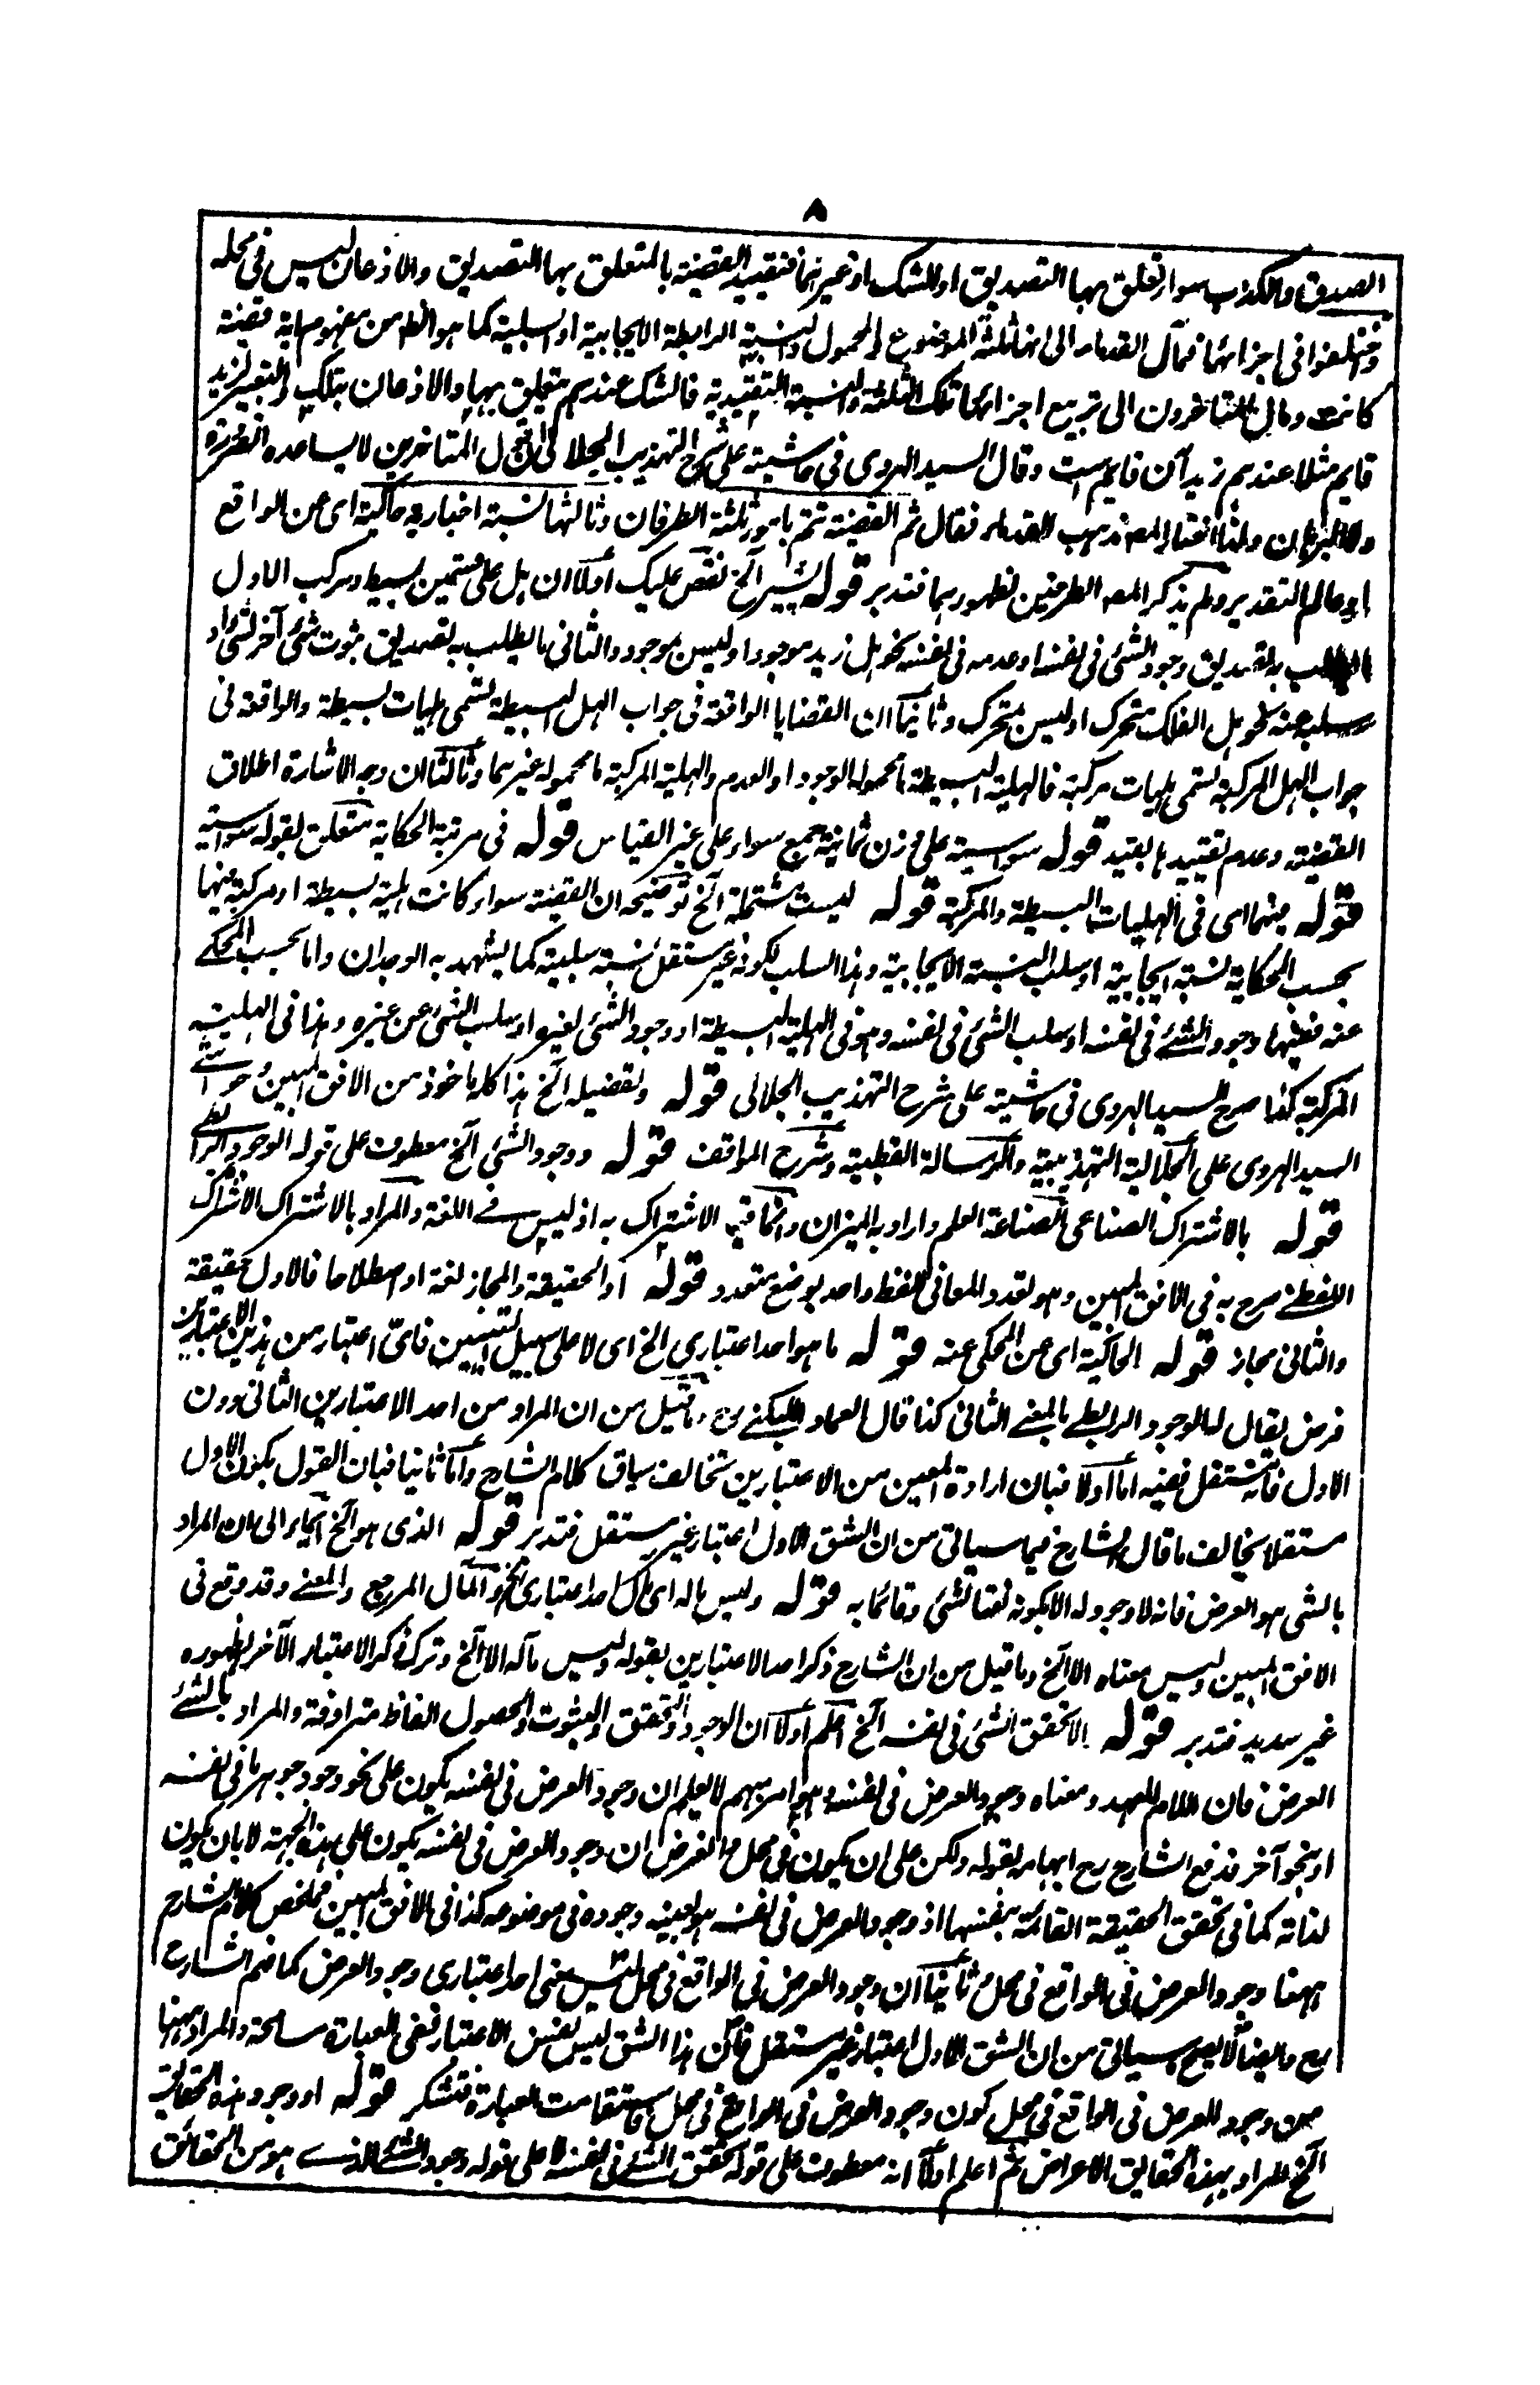 ٨
الصدق والكذب سواء تعلق بها التصديق او الشك او غيرهما فتقييد القضية بالمتعلق بها التصديق والاذعان ليس فى محله
واختلفوا فى اجزائها فمآل القدماء الى انها ثلثة الموضوع والمحمول والنسبة الرابطة الايجابية او السلبية كما هو الظ من مفهوم اية قضية
كانت وقال المتاخرون الى تربيع اجزائها تلك الثلثة والنسبة التقييدية فالشك عندهم متعلق بها والاذعان بتلك والتعبير لزيد
قايم مثلا عندهم زيد آن قايم است وقال السيد الهروى فى حاشيته على شرح التهذيب الجلالى ان قول المتاخرين لا يساعده الضرورة
ولا البرهان ولذا اختار المصـ مذهب القدماء فقال ثم القضية تتم بامور ثلثة الطرفان وثالثها نسبة اخبارية حاكية اى عن الواقع
او عالم التقدير ولم يذكر المصـ الطرفين لظهورهما فتدبر قوله يشير آلخ نقص عليك اولا ان هل على قسمين بسيط ومركب الاول
الطلب به تصديق وجود الشئ فى نفسه او عدمه فى نفسه نحو هل زيد موجود او ليس بموجود والثانى ما يطلب به تصديق ثبوت شئ آخر لشئ او
سلبه عنه نحو هل الفلك متحرك او ليس متحرك وثانيا ان القضايا الواقعة فى جواب الهل البسيطة تسمى هليات بسيطة والواقعة فى
جواب الهل المركبة تسمى هليات مركبة فالهلية البسيطة ما محموله الوجود او العدم والهلية المركبة ما محموله غيرهما وثالثا ان وجه الاشارة اطلاق
القضية وعدم تقييدها بقيد قوله سواسية على وزن ثمانية جمع سواء على غير القياس قوله فى مرتبة الحكاية متعلق بقوله سواسية
قوله منهما اى فى الهليات البسيطة والمركبة قوله ليست مشتملة آلخ توضيحه ان القضية سواء كانت هلية بسيطة او مركبة منها
بحسب الحكاية نسبة ايجابية او سلب النسبة الايجابية وهذا السلب لكونه غير مستقل نسبة سلبية كما يشهد به الوجدان واما بحسب المحكى
عنه ففيها وجود الشئ فى نفسه او سلب الشئ فى نفسه وهو فى الهلية البسيطة او وجود الشئ لغيره او سلب الشئ عن غيره وهذا فى الهلية
المركبة كذا صرح السيد الهروى فى حاشيته على شرح التهذيب الجلالى قوله وتفضيله آلخ هذا كله ماخوذ من الافق المبين وحواشى
السيد الهروى على الجلالية التهذيبية والرسالة القطبية وشرح المواقف قوله ووجود الشئ آلخ معطوف على قوله الوجود الرابطى
قوله بالاشتراك الصناعى الصناعة العلم واراد به الميزان وانما قيد الاشتراك به اذ ليس فى اللغة والمراد بالاشتراك الاشتراك
اللفظى صرح به فى الافق المبين وهو تعدد المعانى للفظ واحد بوضع متعدد قوله او الحقيقة والمجاز لغة او اصطلاحا فالاول حقيقة
والثانى مجاز قوله الحاكية اى عن المحكى عنه قوله ما هو احد اعتبارى الخ اى لا على سبيل التعيين فاىّ اعتبار من هذين الاعتبارين
فرض يقال له الوجود الرابطى بالمعنى الثانى كذا قال العماد اللبكنى ما قيل من ان المراد من احد الاعتبارين الثانى دون
الاول فانه مستقل ففيه اما اولا فبان ارادة المعين من الاعتبارين تخالف سياق كلام الشارح واما ثانيا فبان القول بكون الاول
مستقلا يخالف ما قال الشارح فيما سياتى من ان الشق الاول اعتبار غير مستقل فتدبر قوله الذى هو آلخ ايماء الى ان المراد
بالشى هو العرض فانه لا وجود له الا بكونه نعتا لشئ وقائما به قوله وليس ماله اى مآل احد اعتبارى الخ والمآل المرجع والمعنى وقد وقع فى
الافق المبين وليس معناه الا آلخ وما قيل من ان الشارح ذكر احد الاعتبارين بقوله وليس مآله الا آلخ وترك ذكر الاعتبار الآخر لظهوره
غير سديد فتدبر قوله الا تحقق الشئ فى نفسه آلخ اعلم اولا ان الوجود والتحقق والثبوت والحصول الفاظ مترادفة والمراد بالشئ
العرض فان اللام للعهد ومعناه وجود العرض فى نفسه وهو امر مبهم لا يعلم ان وجود العرض فى نفسه يكون على نحو وجود جوهر ما فى نفسه
او بنحو آخر فدفع الشارح رح ابهامه بقوله ولكن على ان يكون فى محل والغرض ان وجود العرض فى نفسه يكون على هذه الجهة لا بان يكون
لذاته كما فى تحقق الحقيقة القائمة بنفسها اذ وجود العرض فى نفسه هو بعينه وجوده فى موضوعه كذا فى الافق المبين فملخص كلام الشارح
ههنا وجود العرض فى الواقع فى محل وثانيا ان وجود العرض فى الواقع فى محل ليس معنى احد اعتبارى وجود العرض كما فهم الشارح
رح وايضا لا يصح ما سياتى من ان الشق الاول اعتبار غير مستقل فان هذا الشق ليس نفس الاعتبار ففى العبارة مسامحة والمراد ههنا
من وجود العرض فى الواقع فى محل كون وجود العرض فى الواقع فى محل فاستقامت العبارة فتشكر قوله او وجود هذه الحقايق
آلخ المراد بهذه الحقايق الاعراض ثم اعلم اولا انه معطوف على قوله تحقق الشئ فى نفسه لا على قوله وجود الشئ الذى هو من الحقائق